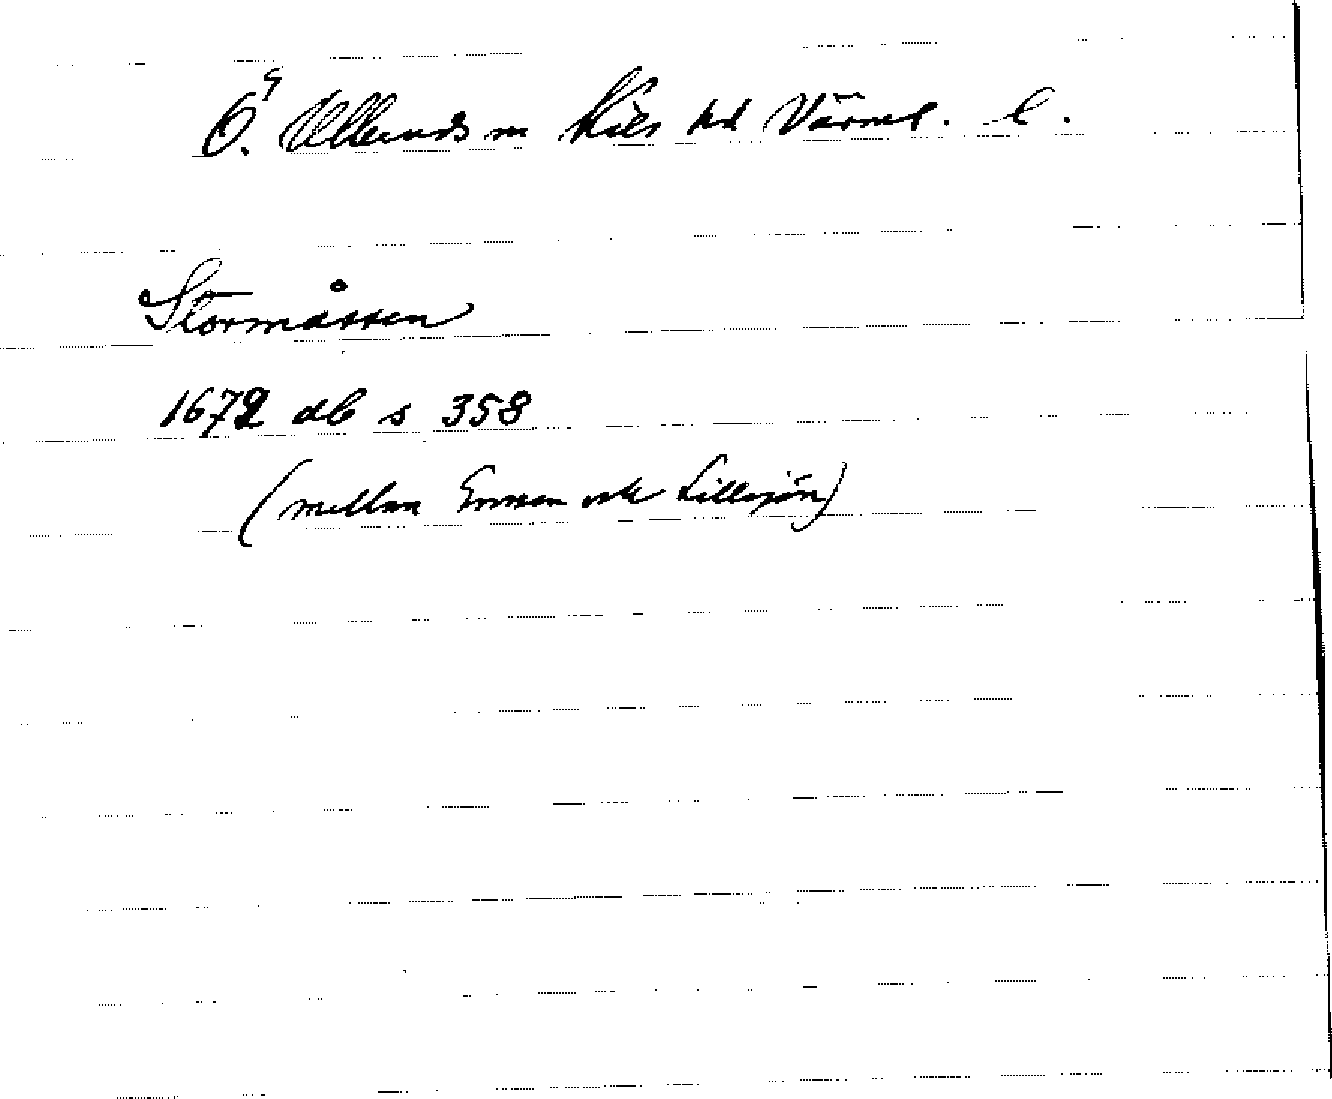 Ö. Ulleruds sn Kils hd Värml. l.
Stormåssen
1672 db s 358
(mellan och Lillsjön)